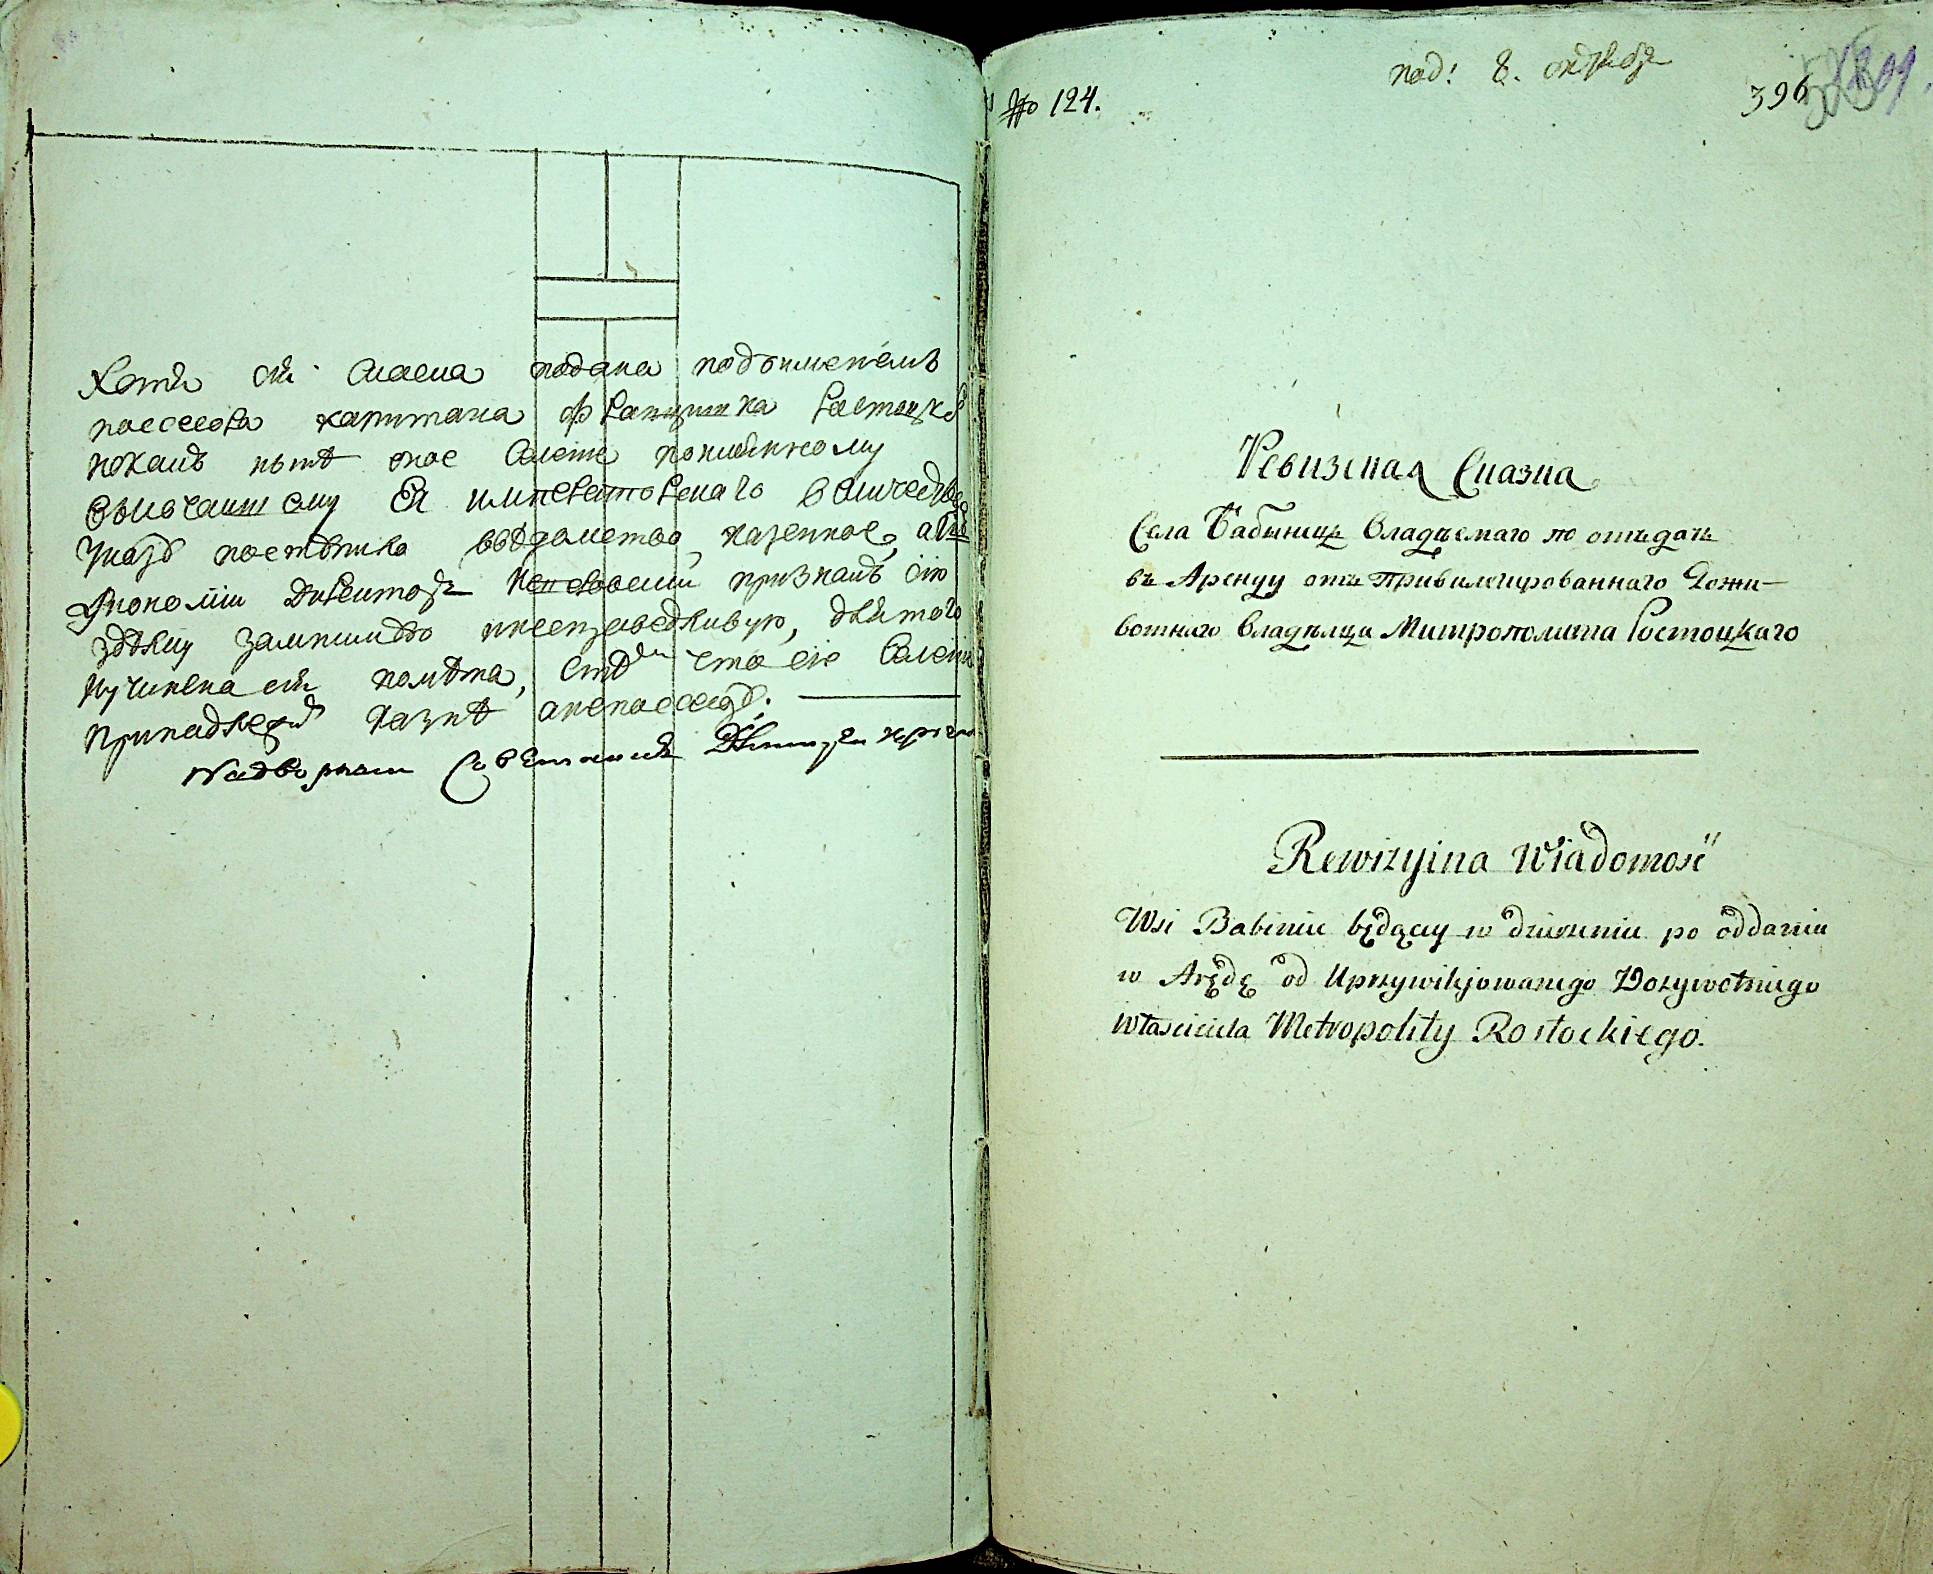 Хотя сія сказка подана подъименемъ
пассесора капитана францишка Ростоцкаго
покаиъ нынѣ оное Селеніе поимянному
высочаишему Ея императорскаго величества
указу поступило въвѣдомство казенное,
Экономіи директоръ признаиъ сію
несправедливую, длятого
иучинена сія помѣта, что сіе Селеніе
принадлежитъ казнѣ анепассесору.
Надворнои Советникъ
№ 124.
под: 8. октября
396
Ревизская Сказка
Села Бабиницъ Владѣемаго по отъдачѣ
въ Аренду отъ Привилегированнаго Дожи-
вотнаго Владѣлца Митрополита Ростоцкаго
Rewizyina Wiadomość
Wsi Babinic będącey w dzierżeniu po oddaniu
w Arędę od Uprzywilejowanego Dożywotniego
właściciela Metropolity Rostockiego.